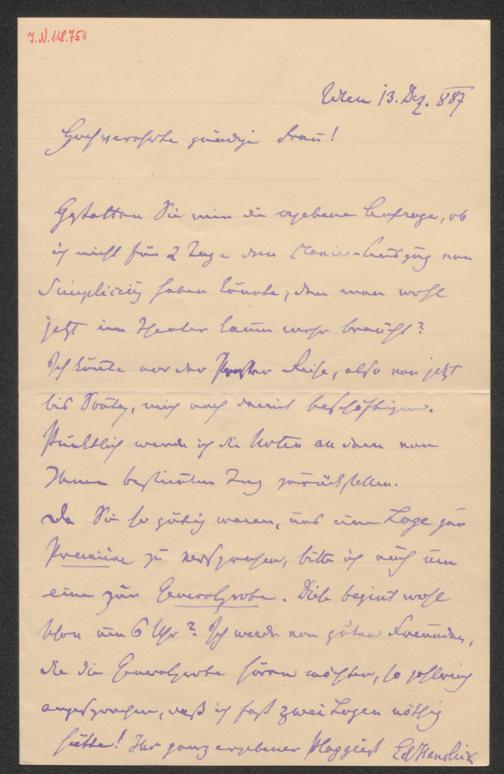 I.N. 118.754
Wien 13. Dez. 887
Hochverehrte gnädige Frau!
Gestatten Sie mir die ergebene Anfrage, ob
ich nicht für 2 Tage den Clavier-Auszug von
Simplicius haben könnte, den man wohl
jetzt im Theater kaum mehr braucht?
Ich könnte vor der Reise, also von jetzt
bis mich noch damit beschäftigen.
Pünktlich werde ich die Noten an dem von
Ihnen bestimmten Tag zurückstellen.
Da Sie so gütig waren, uns eine Loge zur
Première zu versprechen, bitte ich auch um
eine zur Generalprobe. Diese beginnt wohl
schon um 6 Uhr? Ich werde von guten Freunden,
die die Generalprobe hören möchten, so zahlreich
angesprochen, daß ich fast zwei Logen nöthig
hätte! Ihr ganz ergebener Ed Hanslick